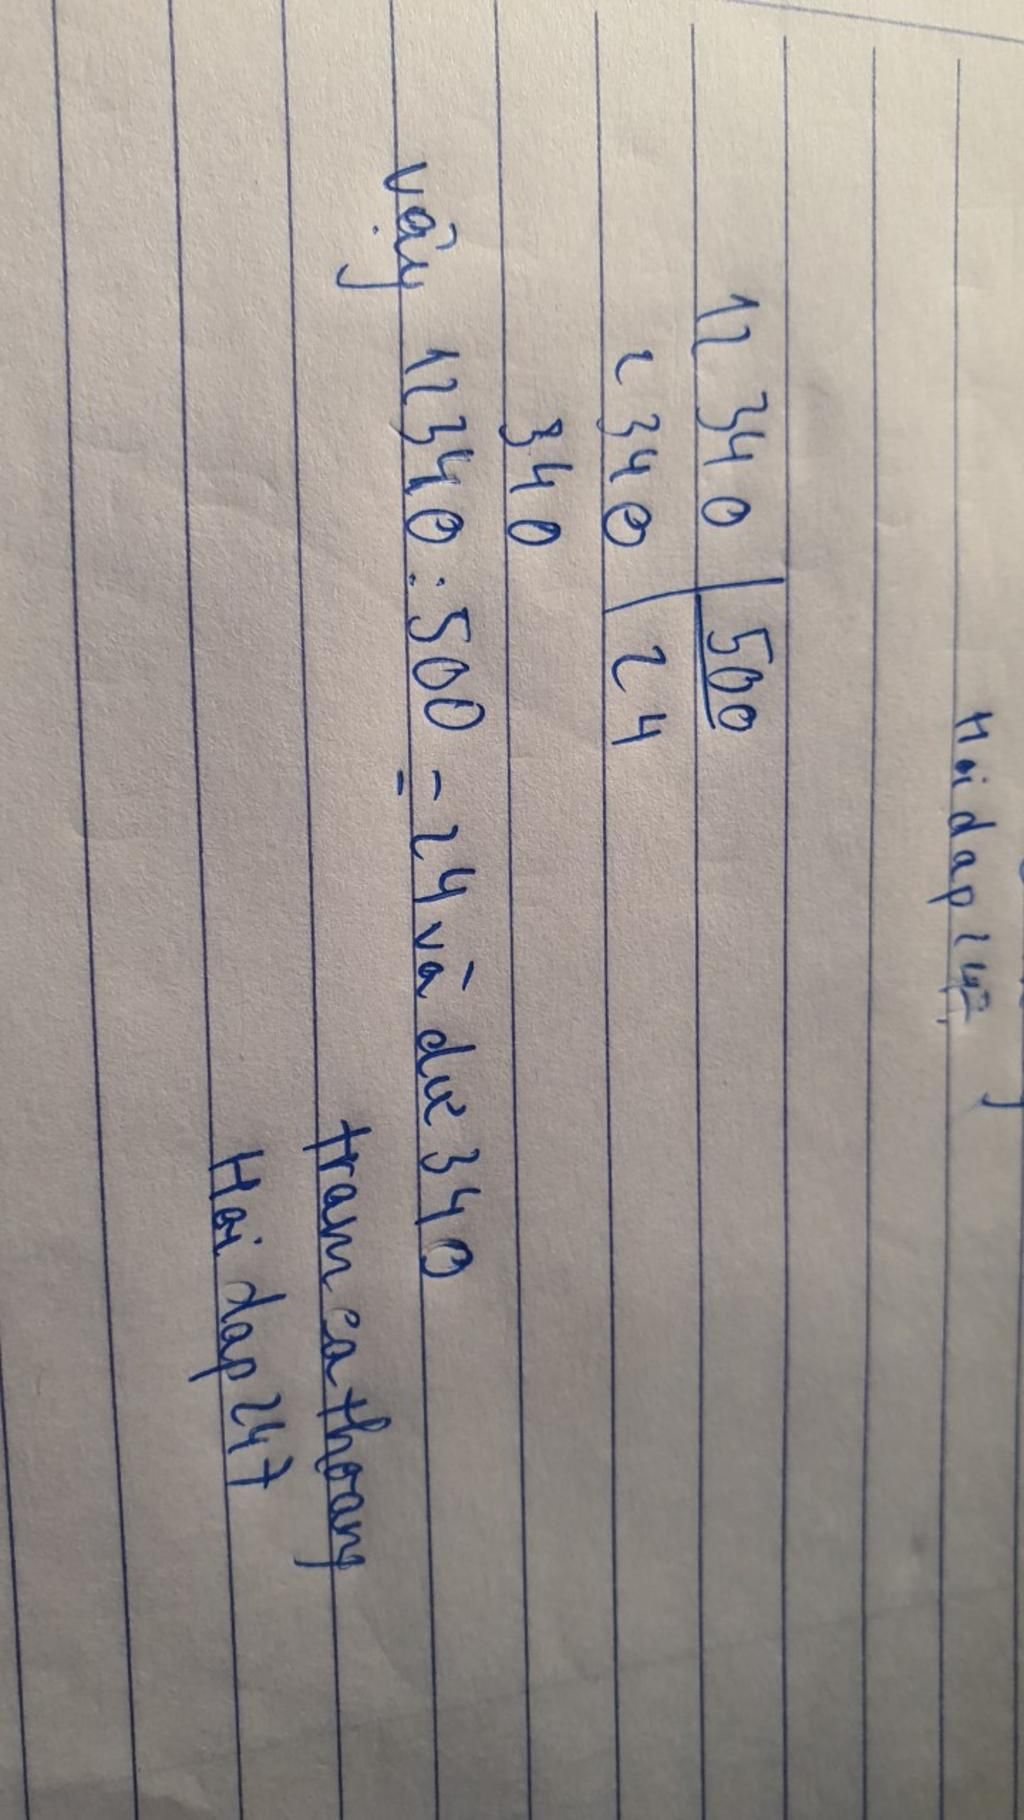 Hoi dap 247
12 340 | 500
2 340 | 24
340
vậy 12340 : 500 = 24 và dư 340
tram ca thoang
Hoi dap 247